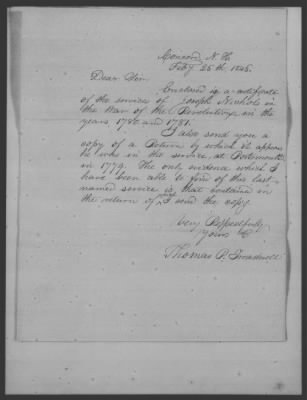 Concord, N. H.
Feby 25th 1845.
Dear Sir.
Enclosed is a certificate
of the services of Joseph Nichols in
the War of the Revolution, in the
years 1780 and 1781.
I also send you a
copy of a Return by which it appears
he was in the service, at Portsmouth
in 1779. The only evidence which I
have been able to find of this last
named service is that contained in
the return of which I send the copy.
Very Respectfully,
Yours &c
Thomas P. Treadwell